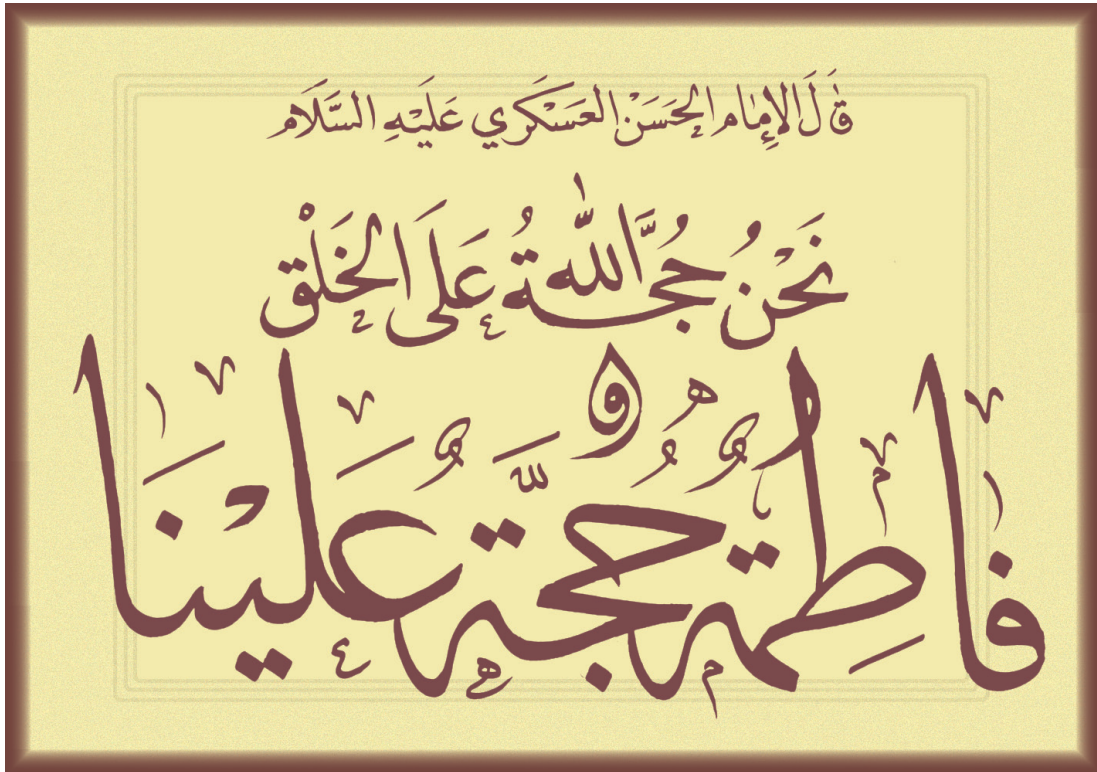 قَالَ الإِمَام الحَسَنْ العَسْكَري عَلَيْهِ السَّلَام
نَحْنُ حُجَّةُ اللهِ عَلَى الخَلْق
وَفَاطِمَةُ حُجَّةٌ عَلَيْنَا